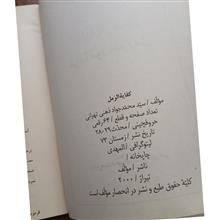 کفایة الرمل
مؤلف / سید محمدجواد ذهنی تهرانی
تعداد صفحه و قطع / ۶۴ رقعی
حروفچینی / محدث ۲۸۰۲۹
تاریخ نشر / زمستان ۷۳
لیتوگرافی / المهدی
چاپخانه /
ناشر / مؤلف
تیراژ / ۲۰۰۰
کلیهٔ حقوق طبع و نشر در انحصار مؤلف است